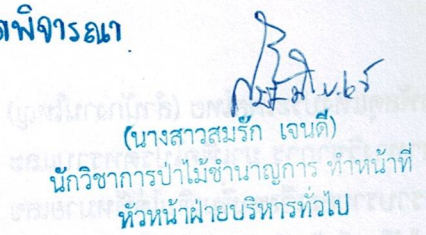 พิจารณา
(นางสาวสมรัก เจนดี)
นักวิชาการป่าไม้ชำนาญการ ทำหน้าที่
หัวหน้าฝ่ายบริหารทั่วไป